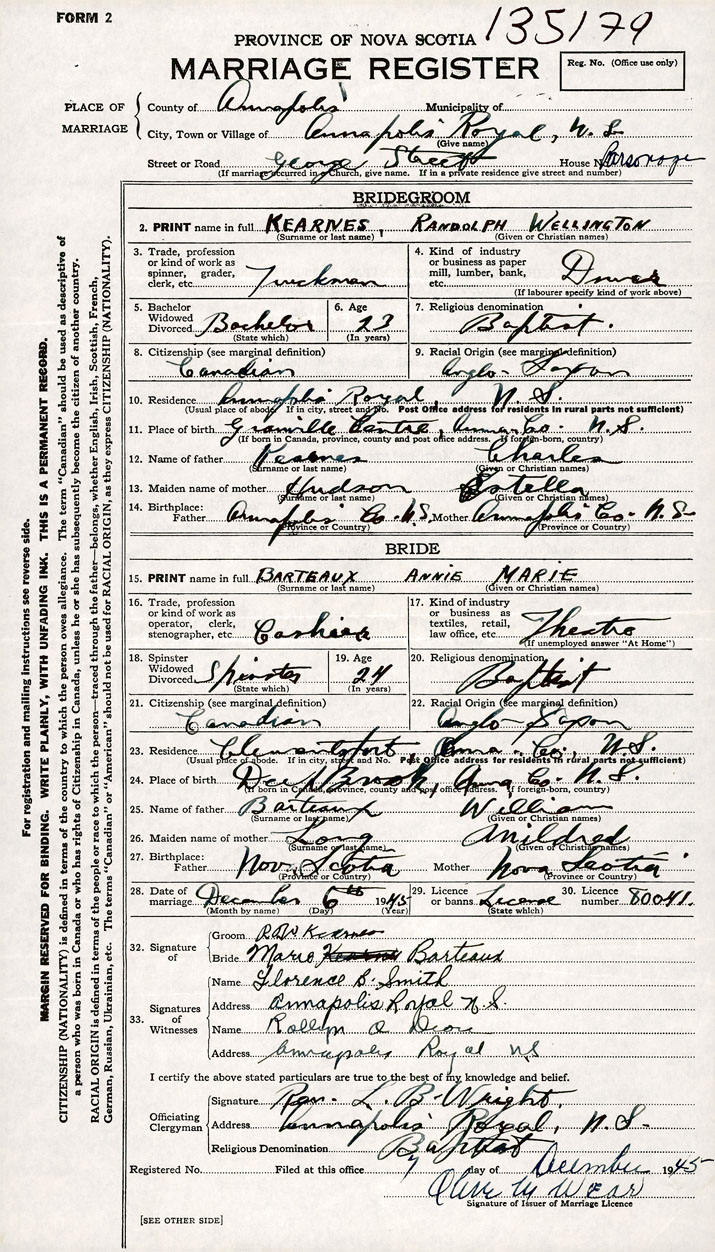 FORM 2
135179
PROVINCE OF NOVA SCOTIA
MARRIAGE REGISTER
Reg. No. (Office use only)
PLACE OF MARRIAGE
County of Annapolis Municipality of
City, Town or Village of Annapolis Royal, N. S.
(Give name)
Street or Road George Street House No. Parsonage
(If marriage occurred in church, give name. If in a private residence give street and number)
BRIDEGROOM
2. PRINT name in full KEARNES, RANDOLPH WELLINGTON
(Surname or last name) (Given or Christian names)
3. Trade, profession or kind of work as spinner, grader, clerk, etc. Truckman
4. Kind of industry or business as paper mill, lumber, bank, etc.
(If labourer specify kind of work above)
5. Bachelor Widowed Divorced Bachelor
(State which)
6. Age 23
(In years)
7. Religious denomination Baptist.
8. Citizenship (see marginal definition) Canadian
9. Racial Origin (see marginal definition) Anglo-Saxon
10. Residence Annapolis Royal, N. S.
(Usual place of abode. If in city, street and No. Post Office address for residents in rural parts not sufficient)
11. Place of birth Granville Centre, Anna. Co. N. S.
(If born in Canada, province, county and post office address. If foreign-born, country)
12. Name of father Kearnes Charles
(Surname or last name) (Given or Christian names)
13. Maiden name of mother Hudson Estella
(Surname or last name) (Given or Christian names)
14. Birthplace: Father Annapolis Co. N.S. Mother Annapolis Co. N. S.
(Province or Country) (Province or Country)
BRIDE
15. PRINT name in full BARTEAUX ANNIE MARIE
(Surname or last name) (Given or Christian names)
16. Trade, profession or kind of work as operator, clerk, stenographer, etc. Cashier
17. Kind of industry or business as textiles, retail, law office, etc. Theatre
(If unemployed answer "At Home")
18. Spinster Widowed Divorced Spinster
(State which)
19. Age 24
(In years)
20. Religious denomination Baptist
21. Citizenship (see marginal definition) Canadian
22. Racial Origin (see marginal definition) Anglo-Saxon
23. Residence Clementsport, Anna. Co., N. S.
(Usual place of abode. If in city, street and No. Post Office address for residents in rural parts not sufficient)
24. Place of birth Deep Brook, Anna Co. N. S.
(If born in Canada, province, county and post office address. If foreign-born, country)
25. Name of father Barteaux William
(Surname or last name) (Given or Christian names)
26. Maiden name of mother Long Mildred
(Surname or last name) (Given or Christian names)
27. Birthplace: Father Nova Scotia Mother Nova Scotia
(Province or Country) (Province or Country)
28. Date of marriage December 6th 1945
(Month by name) (Day) (Year)
29. Licence or banns License
(State which)
30. Licence number 80041.
32. Signature of
Groom R W Kearnes
Bride Marie Kearns Barteaux
33. Signatures of Witnesses
Name Florence B. Smith
Address Annapolis Royal N.S.
Name
Address Annapolis Royal NS
I certify the above stated particulars are true to the best of my knowledge and belief.
Officiating Clergyman
Signature Rev. L. B. Wright.
Address Annapolis Royal, N. S.
Religious Denomination Baptist
Registered No. Filed at this office 7 day of December 1945
Olive M Wear
Signature of Issuer of Marriage Licence
[SEE OTHER SIDE]
For registration and mailing instructions see reverse side.
MARGIN RESERVED FOR BINDING. WRITE PLAINLY, WITH UNFADING INK. THIS IS A PERMANENT RECORD.
CITIZENSHIP (NATIONALITY) is defined in terms of the country to which the person owes allegiance. The term "Canadian" should be used as descriptive of
a person who was born in Canada or who has rights of Citizenship in Canada, unless he or she has subsequently become the citizen of another country.
RACIAL ORIGIN is defined in terms of the people or race to which the person—traced through the father—belongs, whether English, Irish, Scottish, French,
German, Russian, Ukrainian, etc. The terms "Canadian" or "American" should not be used for RACIAL ORIGIN, as they express CITIZENSHIP (NATIONALITY).